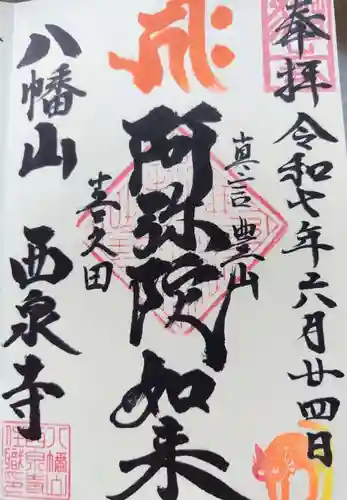 奉拝 令和七年六月廿四日
真言豊山
阿弥陀如来
喜久田
八幡山 西泉寺
八幡山
西泉寺
住職印